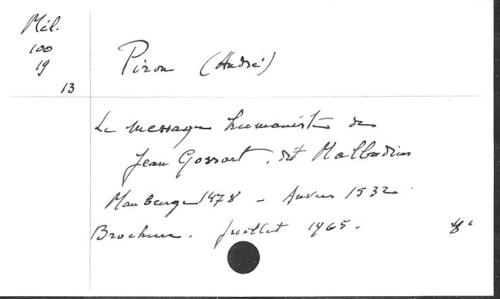 Mél.
100
19
13
Piron (André)
Le message humaniste de
Jean Gossart, dit Malbodius
Maubeuge 1478 - Anvers 1532.
Brochure. Juillet 1965.